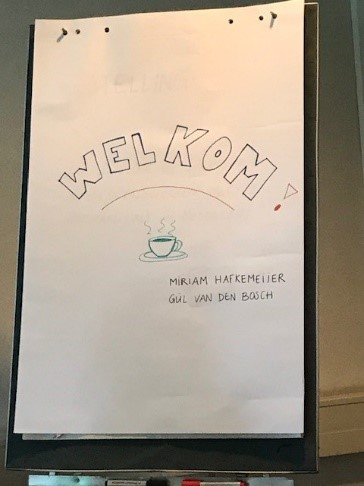 WELKOM!
MIRIAM HAFKEMEIJER
GÜL VAN DEN BOSCH